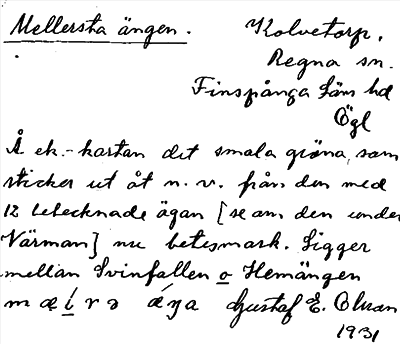 Mellersta ängen.
Kolvetorp.
Regna sn.
Finspånga läns hd
Ögl
Å ek.-kartan det smala gröna, som
sticker ut åt n.v. från den med
12 betecknade ägan [se anm. den under
Värman] nu betesmark. Ligger
mellan Svinfallen o Hemängen
Gustaf E. Olsson
1931